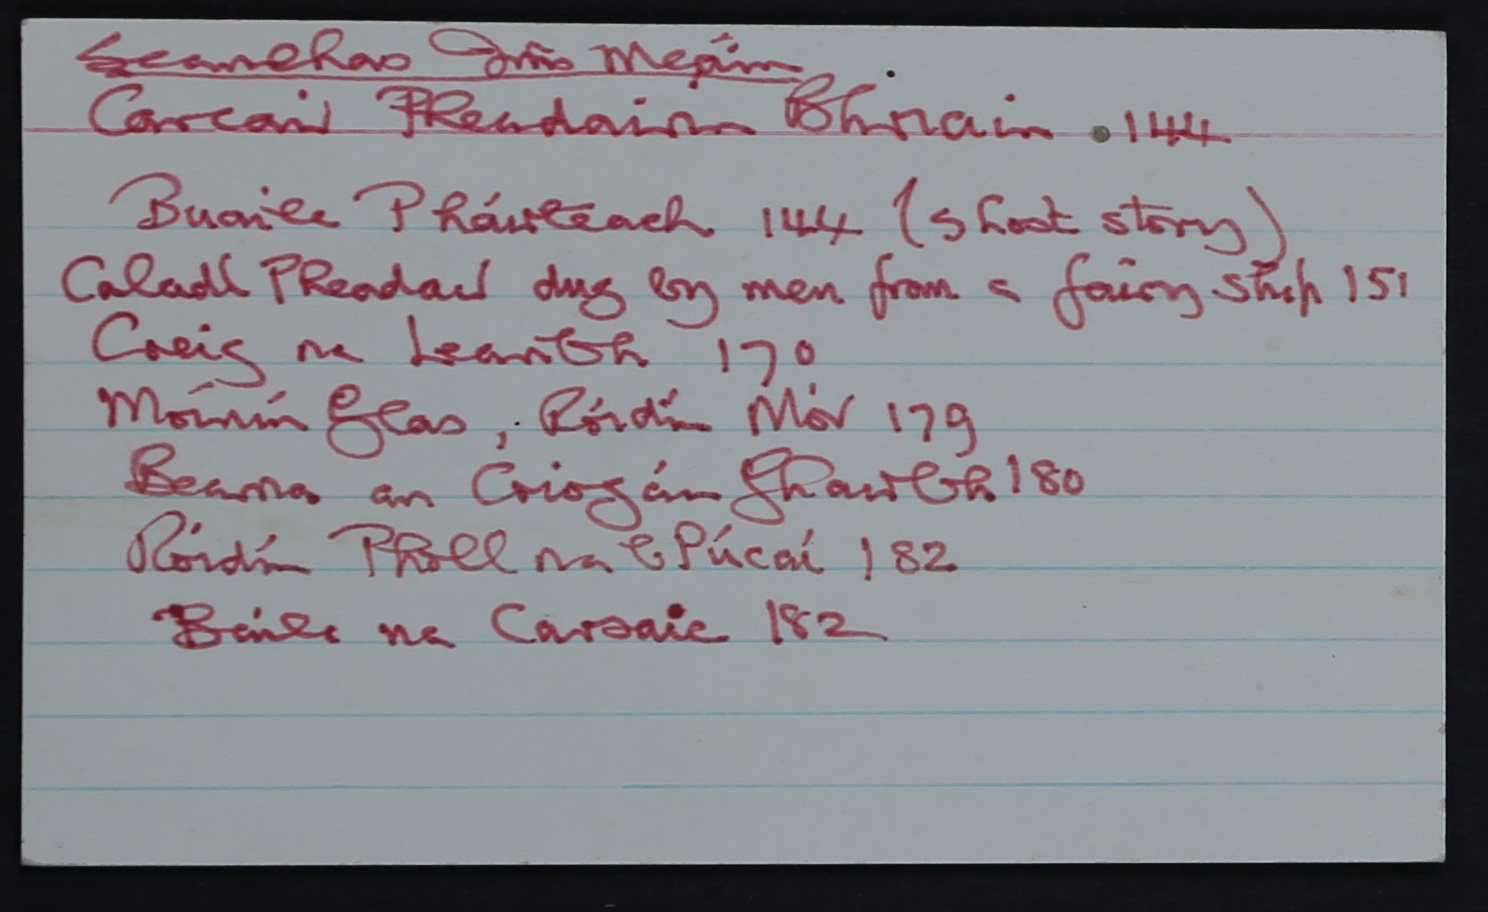 Seanchas Inis Meáin
Carcair Pheadairín Bhriain . 144
Buaile Pháirteach 144 (short story)
Caladh Pheadair dug by men from a fairy ship 151
Creig na Leanbh 170
Móinín Glas, Róidín Mór 179
Bearna an Criogán Ghairbh 180
Róidín Pholl na bPúcaí 182
Baile na Carraic 182